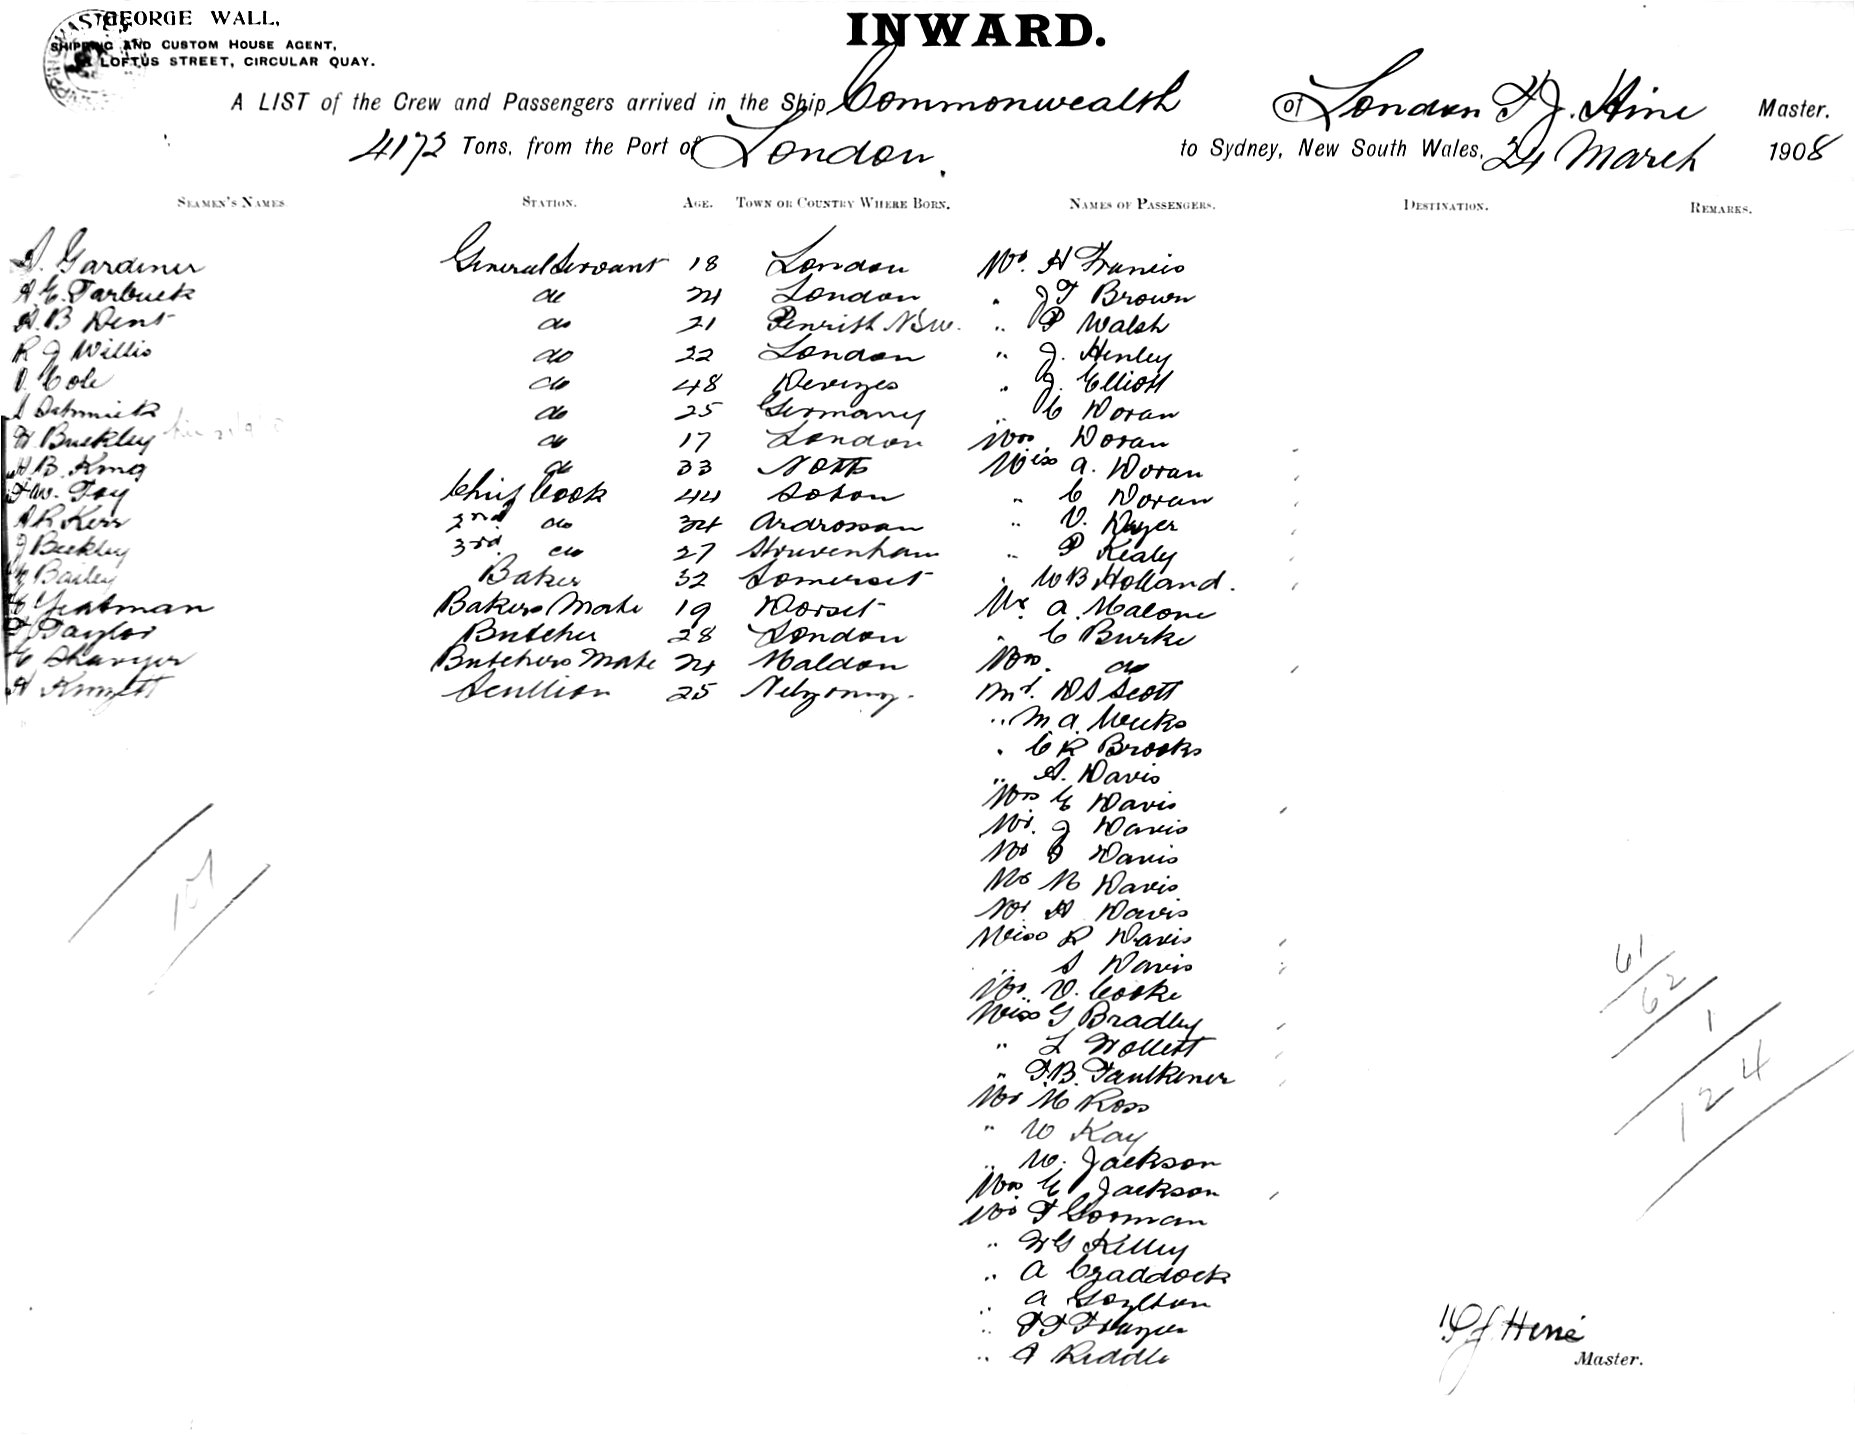 GEORGE WALL,
SHIPPING AND CUSTOM HOUSE AGENT,
LOFTUS STREET, CIRCULAR QUAY.
INWARD.
A LIST of the Crew and Passengers arrived in the Ship Commonwealth of London F J. Hine Master.
4173 Tons, from the Port of London. to Sydney, New South Wales, 24 March 1908
SEAMEN'S NAMES STATION. AGE. TOWN OR COUNTRY WHERE BORN. NAMES OF PASSENGERS. DESTINATION. REMARKS.
Gardiner General Servant 18 London Mr. H Francis
A. E. Tarbuck do 24 London " J T Brown
A. B Dent do 21 Penrith NSW. " P Walsh
R J Willis do 22 London " J. Henley
Cole do 48 Devizes " J. Elliott
Schmick do 25 Germany " C Doran
H Buckley do 17 London Mrs. Doran
H B. King do 33 Notts Miss A. Doran
F W. Toy Chief Cook 44 Soton " C Doran
A R Kerr 2nd do 34 Ardrossan " V. Dwyer
J Beckley 3rd do 27 Shrivenham " P Kealy
Bailey Baker 32 Somerset " W B Holland.
E Yeatman Bakers Mate 19 Dorset Mr. A. Malone
F Taylor Butcher 28 London " C Burke
E Shavyer Butchers Mate 24 Maldon Mrs. do
H Scullion 25 Mr. D S Scott
" M A. Weeks
" C R Brooks
" A. Davis
Mrs E Davis
Mr. J Davis
Mr Davis
Mr M Davis
Mr. H Davis
Miss R Davis
" S Davis
V. Cooke
Miss G Bradley
" L Wollett
" F. B. Faulkener
Mr M Ross
" W Kay
" W. Jackson
Mrs E Jackson
Mr F Gorman
" W G Kelley
" A Craddock
" A
" F F
" Riddle
107
61
62
1
124
F J Hine
Master.